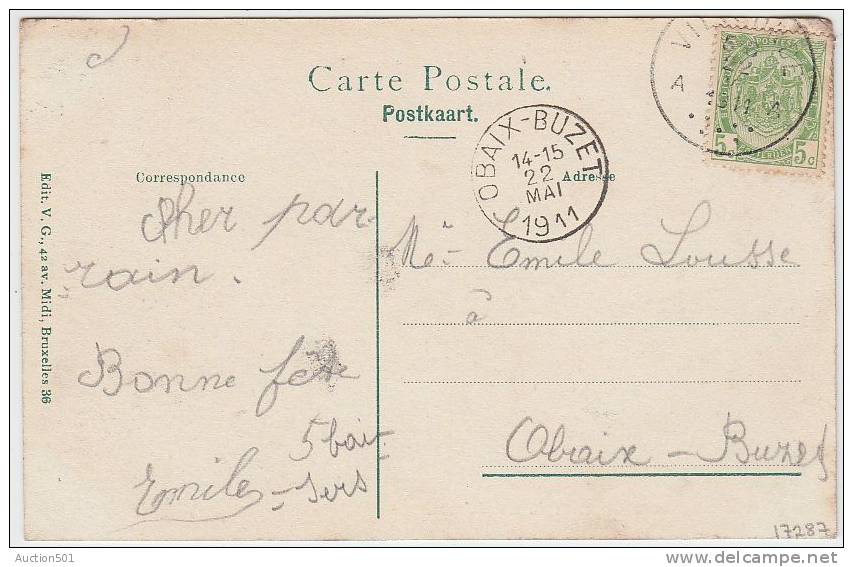 Carte Postale.
Postkaart.
OBAIX-BUZET
14-15
22
MAI
1911
A
5
5c
Correspondance
Adresse
Cher par-
rain.
Bonne fête
5 bai-
Emile - sers
Mr Emile Lousse
à
Obaix-Buzet
Edit. V. G., 42 av. Midi, Bruxelles 36
17287
Auction501
delcampe.net